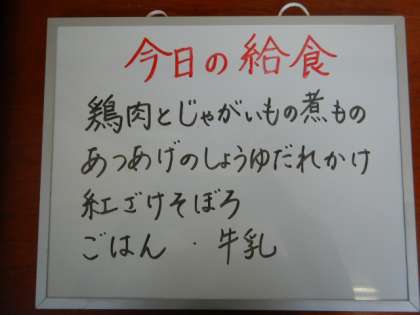 今日の給食
鶏肉とじゃがいもの煮もの
あつあげのしょうゆだれかけ
紅ざけそぼろ
ごはん ・ 牛乳